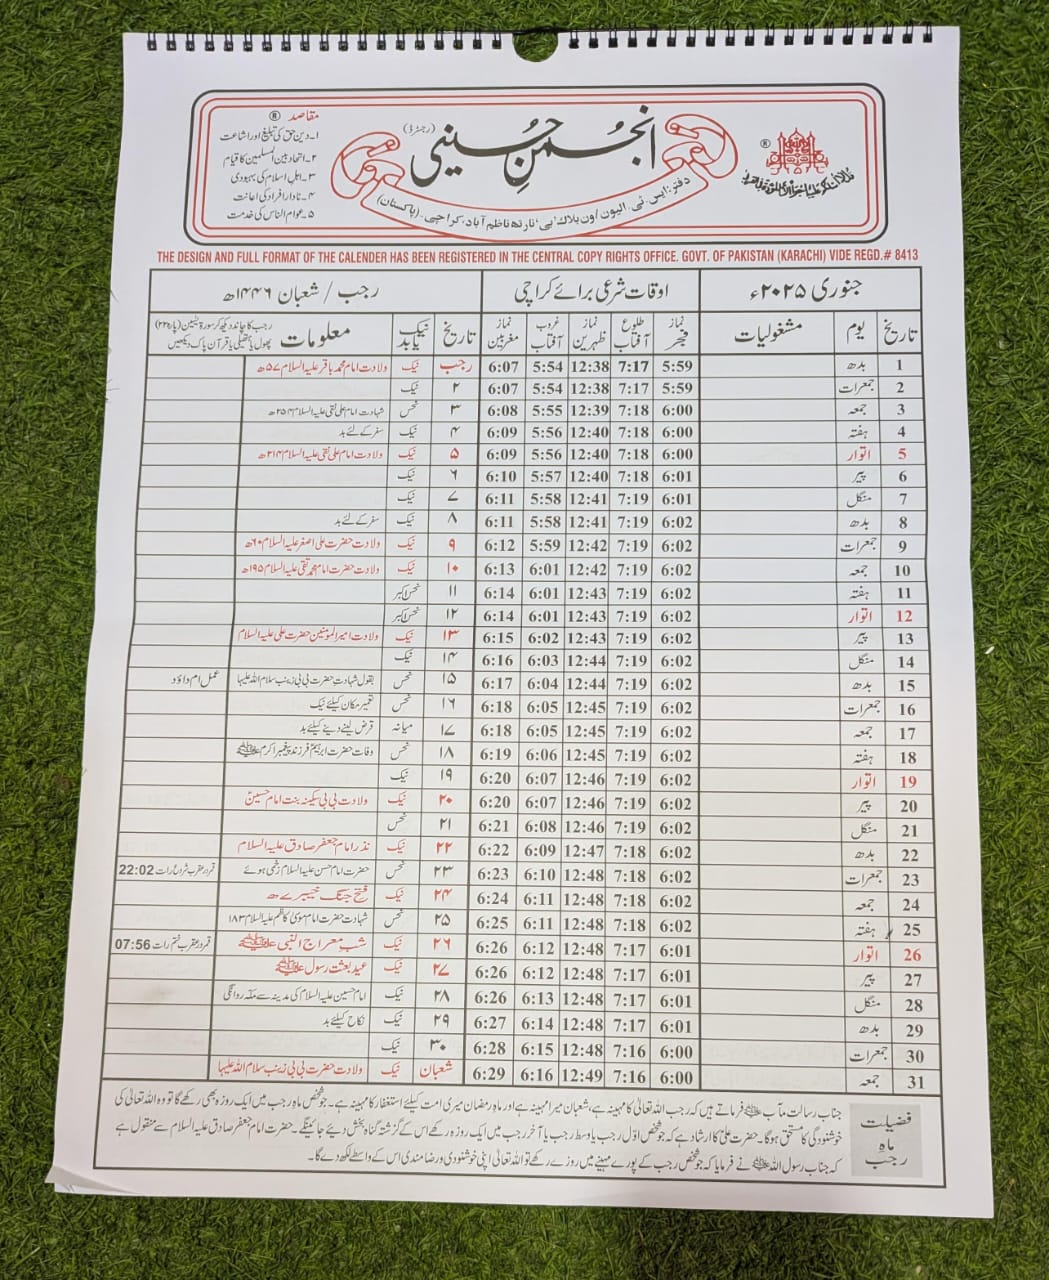 مقاصد ®
۱۔ دین حق کی تبلیغ اور اشاعت
۲۔ اتحاد بین المسلمین کا قیام
۳۔ اہل اسلام کی بہبودی
۴۔ نادار افراد کی اعانت
۵۔ عوام الناس کی خدمت
انجمن حسینی (رجسٹرڈ)
دفتر: ایس ٹی الیون / ون بلاک 'بی' نارتھ ناظم آباد، کراچی۔ (پاکستان)
®
THE DESIGN AND FULL FORMAT OF THE CALENDER HAS BEEN REGISTERED IN THE CENTRAL COPY RIGHTS OFFICE. GOVT. OF PAKISTAN (KARACHI) VIDE REGD.# 8413
جنوری ۲۰۲۵ء اوقات شرعی برائے کراچی رجب / شعبان ۱۴۴۶ھ
تاریخ یوم مشغولیات نماز فجر طلوع آفتاب نماز ظہرین غروب آفتاب نماز مغربین تاریخ نیک یا بد معلومات رجب کا چاند دیکھ کر سورۃ یٰسین (پارہ ۲۳) پھول یا ہتھیلی یا قرآن پاک دیکھیں
1 بدھ 5:59 7:17 12:38 5:54 6:07 رجب نیک ولادت امام محمد باقر علیہ السلام ۵۷ھ
2 جمعرات 5:59 7:17 12:38 5:54 6:07 ۲ نیک
3 جمعہ 6:00 7:18 12:39 5:55 6:08 ۳ نحس شہادت امام علی نقی علیہ السلام ۲۵۴ھ
4 ہفتہ 6:00 7:18 12:40 5:56 6:09 ۴ نیک سفر کے لئے بد
5 اتوار 6:00 7:18 12:40 5:56 6:09 ۵ نیک ولادت امام علی نقی علیہ السلام ۲۱۴ھ
6 پیر 6:01 7:18 12:40 5:57 6:10 ۶ نیک
7 منگل 6:01 7:19 12:41 5:58 6:11 ۷ نیک
8 بدھ 6:02 7:19 12:41 5:58 6:11 ۸ نیک سفر کے لئے بد
9 جمعرات 6:02 7:19 12:42 5:59 6:12 ۹ نیک ولادت حضرت علی اصغر علیہ السلام ۶۰ھ
10 جمعہ 6:02 7:19 12:42 6:01 6:13 ۱۰ نیک ولادت حضرت امام محمد تقی علیہ السلام ۱۹۵ھ
11 ہفتہ 6:02 7:19 12:43 6:01 6:14 ۱۱ نحس اکبر
12 اتوار 6:02 7:19 12:43 6:01 6:14 ۱۲ نحس اکبر
13 پیر 6:02 7:19 12:43 6:02 6:15 ۱۳ نیک ولادت امیر المومنین حضرت علی علیہ السلام
14 منگل 6:02 7:19 12:44 6:03 6:16 ۱۴ نیک
15 بدھ 6:02 7:19 12:44 6:04 6:17 ۱۵ نحس بقول شہادت حضرت بی بی زینب سلام اللہ علیہا عمل ام داؤد
16 جمعرات 6:02 7:19 12:45 6:05 6:18 ۱۶ نحس تعمیر مکان کیلئے نیک
17 جمعہ 6:02 7:19 12:45 6:05 6:18 ۱۷ میانہ قرض لینے دینے کیلئے بد
18 ہفتہ 6:02 7:19 12:45 6:06 6:19 ۱۸ نحس وفات حضرت ابراہیم فرزند پیغمبر اکرم ﷺ
19 اتوار 6:02 7:19 12:46 6:07 6:20 ۱۹ نیک
20 پیر 6:02 7:19 12:46 6:07 6:20 ۲۰ نیک ولادت بی بی سکینہ بنت امام حسینؑ
21 منگل 6:02 7:19 12:46 6:08 6:21 ۲۱ نحس
22 بدھ 6:02 7:18 12:47 6:09 6:22 ۲۲ نیک نذر امام جعفر صادق علیہ السلام
23 جمعرات 6:02 7:18 12:48 6:10 6:23 ۲۳ نحس حضرت امام حسن علیہ السلام زخمی ہوئے قمر در عقرب شروع رات 22:02
24 جمعہ 6:02 7:18 12:48 6:11 6:24 ۲۴ نیک فتح جنگ خیبر ۷ھ
25 ہفتہ 6:02 7:18 12:48 6:11 6:25 ۲۵ نحس شہادت حضرت امام موسیٰ کاظم علیہ السلام ۱۸۳
26 اتوار 6:01 7:17 12:48 6:12 6:26 ۲۶ نیک شب معراج النبی ﷺ قمر در عقرب ختم رات 07:56
27 پیر 6:01 7:17 12:48 6:12 6:26 ۲۷ نیک عید بعثت رسول ﷺ
28 منگل 6:01 7:17 12:48 6:13 6:26 ۲۸ نیک امام حسین علیہ السلام کی مدینہ سے مکہ روانگی
29 بدھ 6:01 7:17 12:48 6:14 6:27 ۲۹ نیک نکاح کیلئے بد
30 جمعرات 6:00 7:16 12:48 6:15 6:28 ۳۰ نیک
31 جمعہ 6:00 7:16 12:49 6:16 6:29 شعبان نیک ولادت حضرت بی بی زینب سلام اللہ علیہا
فضیلت ماہ رجب
جناب رسالت مآب ﷺ فرماتے ہیں کہ رجب اللہ تعالیٰ کا مہینہ ہے، شعبان میرا مہینہ ہے اور ماہ رمضان میری امت کیلئے استغفار کا مہینہ ہے۔ جو شخص ماہ رجب میں ایک روزہ بھی رکھے گا تو وہ اللہ تعالیٰ کی
خوشنودگی کا مستحق ہوگا۔ حضرت علیؑ کا ارشاد ہے کہ جو شخص اوّل رجب یا وسط رجب یا آخر رجب میں ایک روزہ رکھے اس کے گزشتہ گناہ بخش دیئے جائینگے۔ حضرت امام جعفر صادق علیہ السلام سے منقول ہے
کہ جناب رسول اللہ ﷺ نے فرمایا کہ جو شخص رجب کے پورے مہینے میں روزے رکھے تو اللہ تعالیٰ اپنی خوشنودی و رضا مندی اس کے واسطے لکھ دے گا۔